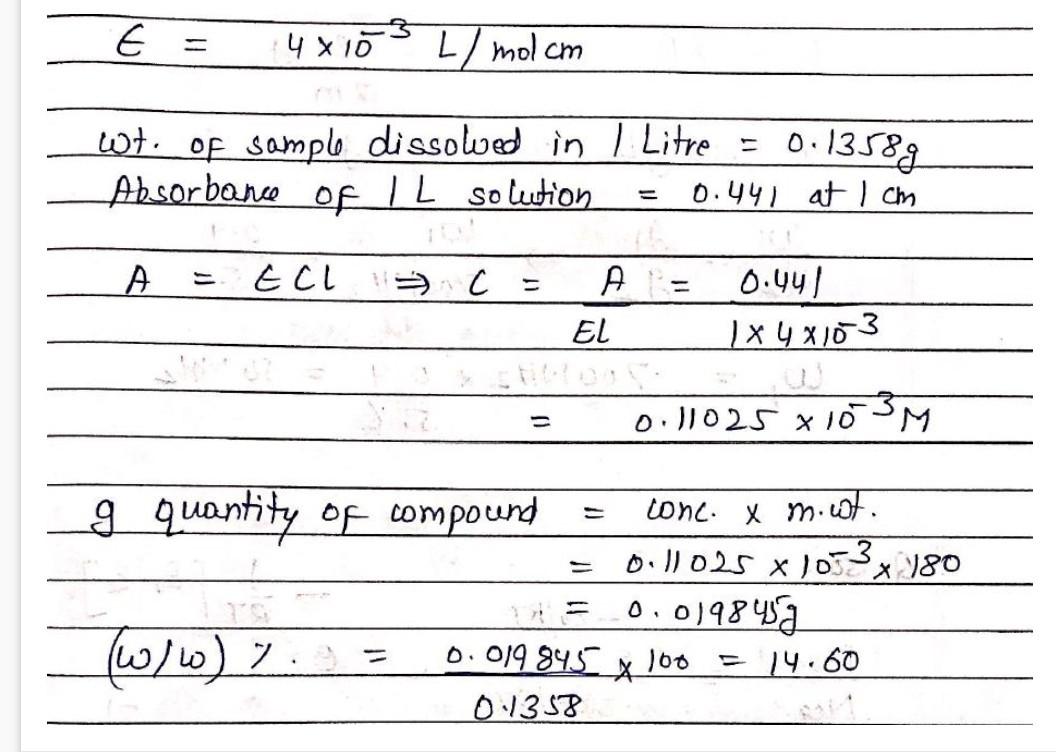 Є = 4 × 10⁻³ L/mol cm
wt. of sample dissolved in 1 Litre = 0.1358g
Absorbance of 1 L solution = 0.441 at 1 cm
A = ЄCl ⇒ C = A = 0.441
El 1 × 4 × 10⁻³
= 0.11025 × 10⁻³ M
g quantity of compound = conc. × m.wt.
= 0.11025 × 10⁻³ × 180
= 0.019845g
(w/w) %. = 0.019845 × 100 = 14.60
0.1358